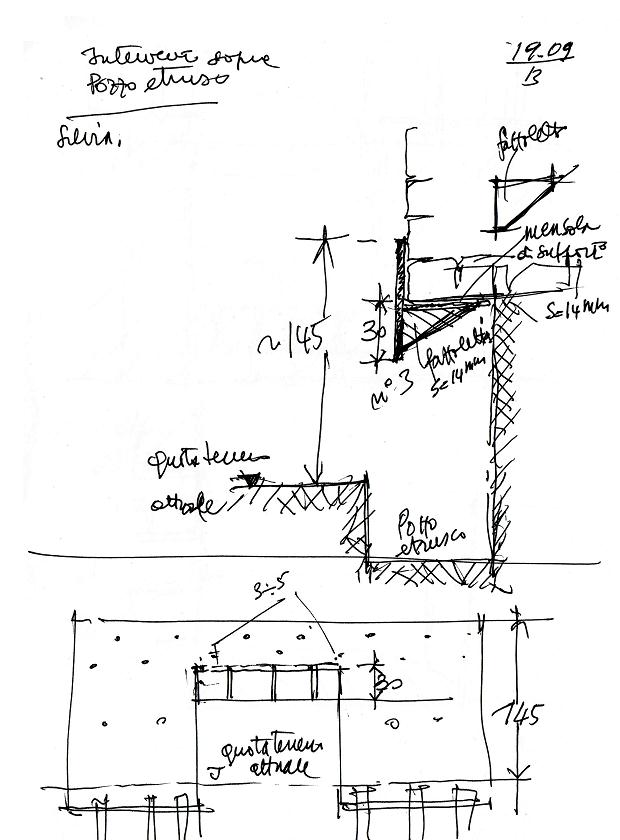 Interventi sopra
Pozzo etrusco
19.09
B
Silvia,
fazzoletto
mensola
di supporto
S=14mm
30
~145
fazzoletti
S=14mm
n° 3
quota terreno
attuale
Pozzo
etrusco
3÷5
30
145
quota terreno
attuale